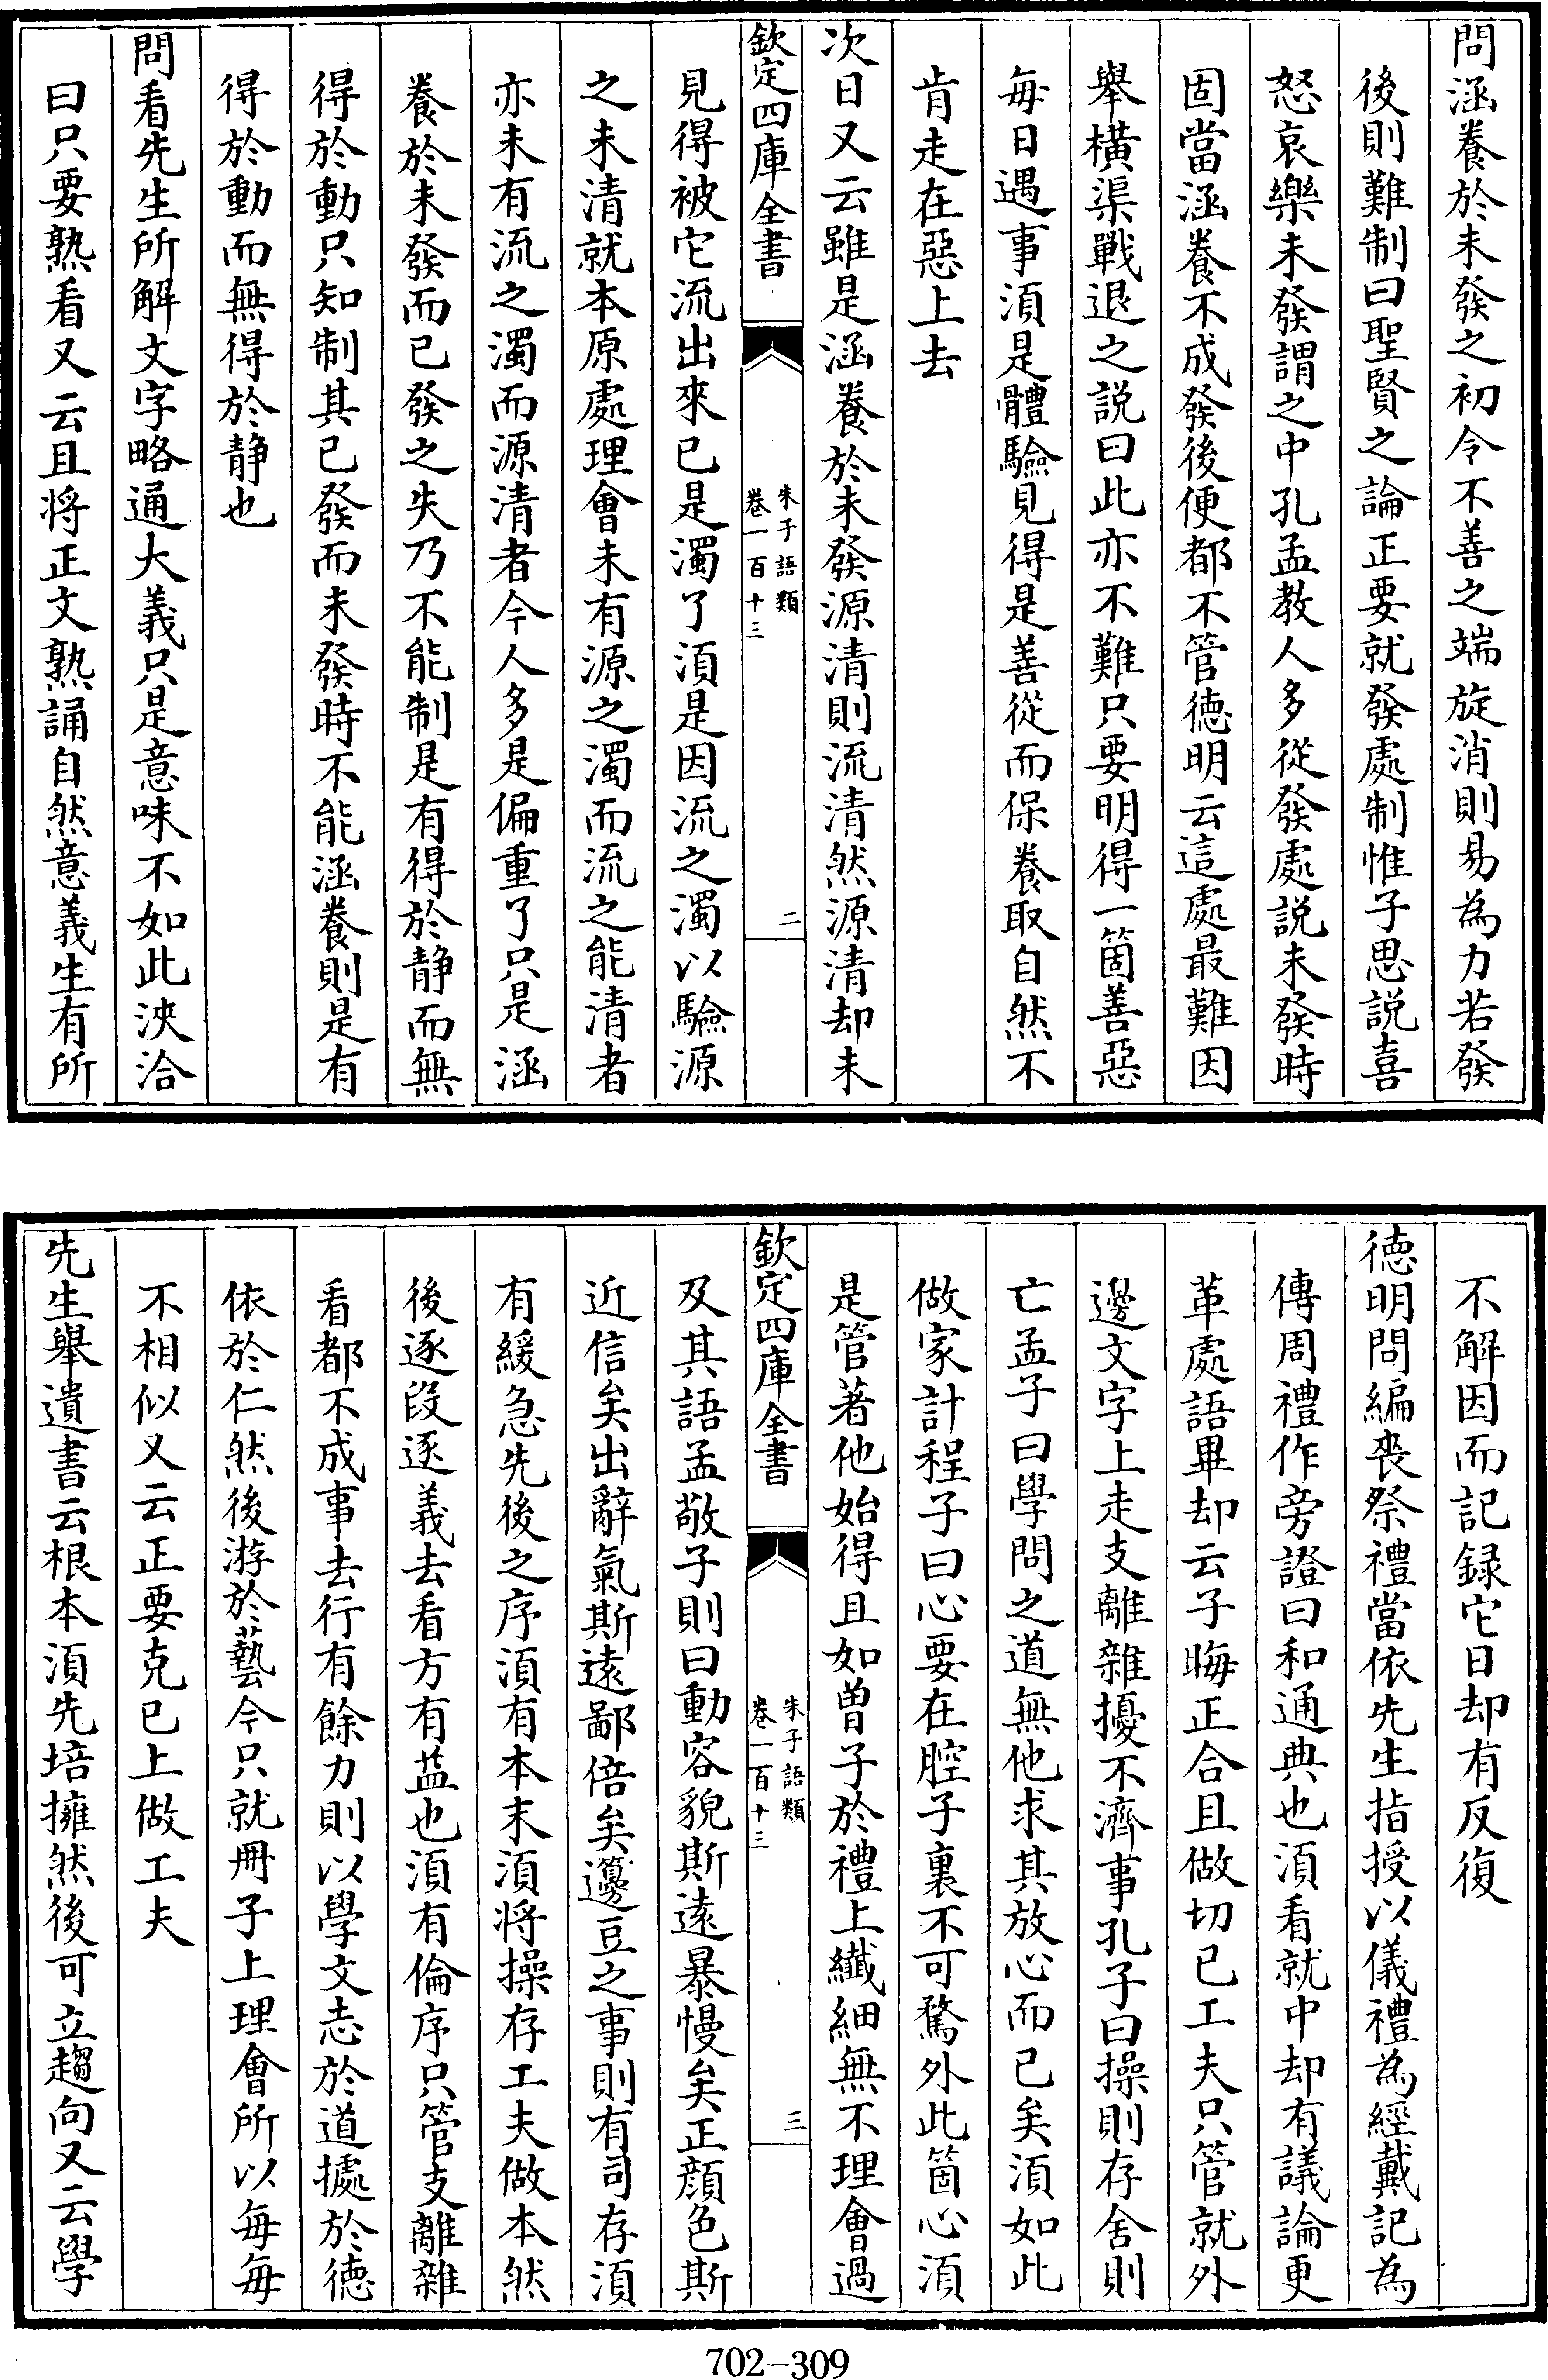 問涵養於未發之初令不善之端旋消則易為力若發
後則難制曰聖賢之論正要就發處制惟子思說喜
怒哀樂未發謂之中孔孟教人多從發處說未發時
固當涵養不成發後便都不管徳明云這處最難因
舉橫渠戰退之說曰此亦不難只要明得一箇善惡
每日遇事湏是體驗見得是善從而保養取自然不
肯走在惡上去
次日又云雖是涵養於未發源清則流清然源清却未
欽定四庫全書
朱子語類
卷一百十三
二
見得被它流出來已是濁了湏是因流之濁以驗源
之未清就本原處理會未有源之濁而流之能清者
亦未有流之濁而源清者今人多是偏重了只是涵
養於未發而已發之失乃不能制是有得於静而無
得於動只知制其已發而未發時不能涵養則是有
得於動而無得於静也
問看先生所解文字略通大義只是意味不如此浹洽
曰只要熟看又云且將正文熟誦自然意義生有所
不解因而記録它日却有反復
徳明問編喪祭禮當依先生指授以儀禮為經戴記為
傳周禮作旁證曰和通典也湏看就中却有議論更
革處語畢却云子晦正合且做切已工夫只管就外
邊文字上走支離雜擾不濟事孔子曰操則存舍則
亡孟子曰學問之道無他求其放心而已矣湏如此
做家計程子曰心要在腔子裏不可騖外此箇心湏
是管著他始得且如曾子於禮上纖細無不理會過
欽定四庫全書
朱子語類
卷一百十三
三
及其語孟敬子則曰動容貌斯遠暴慢矣正顔色斯
近信矣出辭氣斯遠鄙倍矣籩豆之事則有司存湏
有緩急先後之序湏有本末湏將操存工夫做本然
後逐段逐義去看方有益也湏有倫序只管支離雜
看都不成事去行有餘力則以學文志於道據於徳
依於仁然後游於藝今只就冊子上理會所以每每
不相似又云正要克已上做工夫
先生舉遺書云根本湏先培擁然後可立趨向又云學
702-309